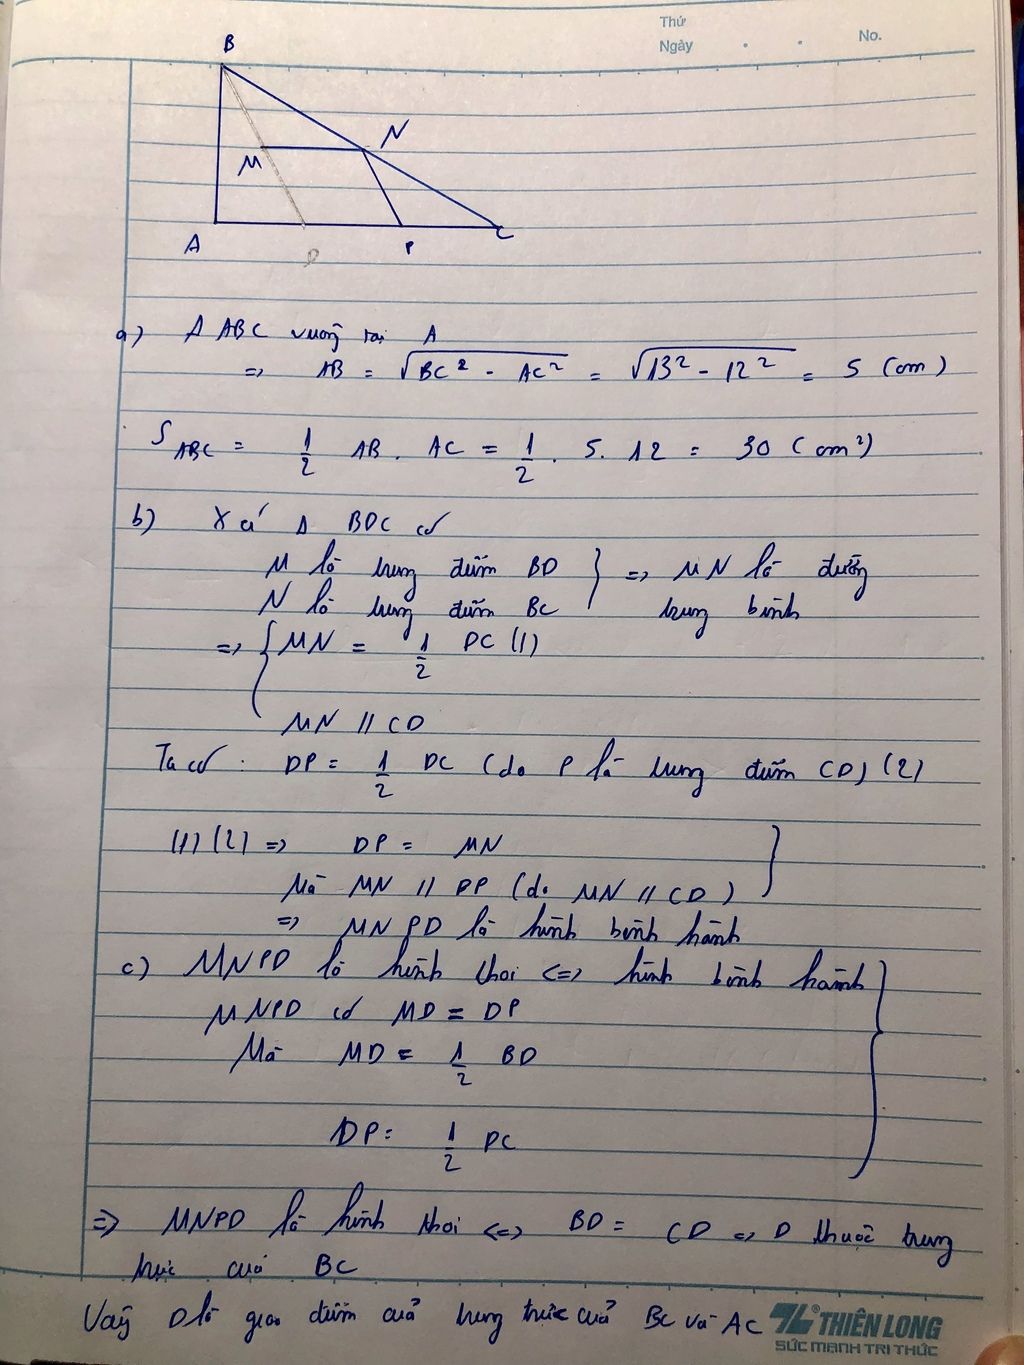 Thứ
Ngày
No.
B
N
M
A
D
P
C
a) Δ ABC vuông tại A
=> AB = √BC² - AC² = √13² - 12² = 5 (cm)
S ABC = 1/2 AB . AC = 1/2 . 5 . 12 = 30 (cm²)
b) Xét Δ BDC có
M là trung điểm BD } => MN là đường
N là trung điểm BC trung bình
=> { MN = 1/2 DC (1)
MN // CD
Ta có : DP = 1/2 DC (do P là trung điểm CD) (2)
(1) (2) => DP = MN }
Mà MN // DP (do MN // CD)
=> MNPD là hình bình hành
c) MNPD là hình thoi <=> hình bình hành }
MNPD có MD = DP
Mà MD = 1/2 BD
DP = 1/2 DC
=> MNPD là hình thoi <=> BD = CD => D thuộc trung
trực của BC
Vậy D là giao điểm của trung trực của BC và AC
TL® THIÊN LONG
SỨC MẠNH TRI THỨC